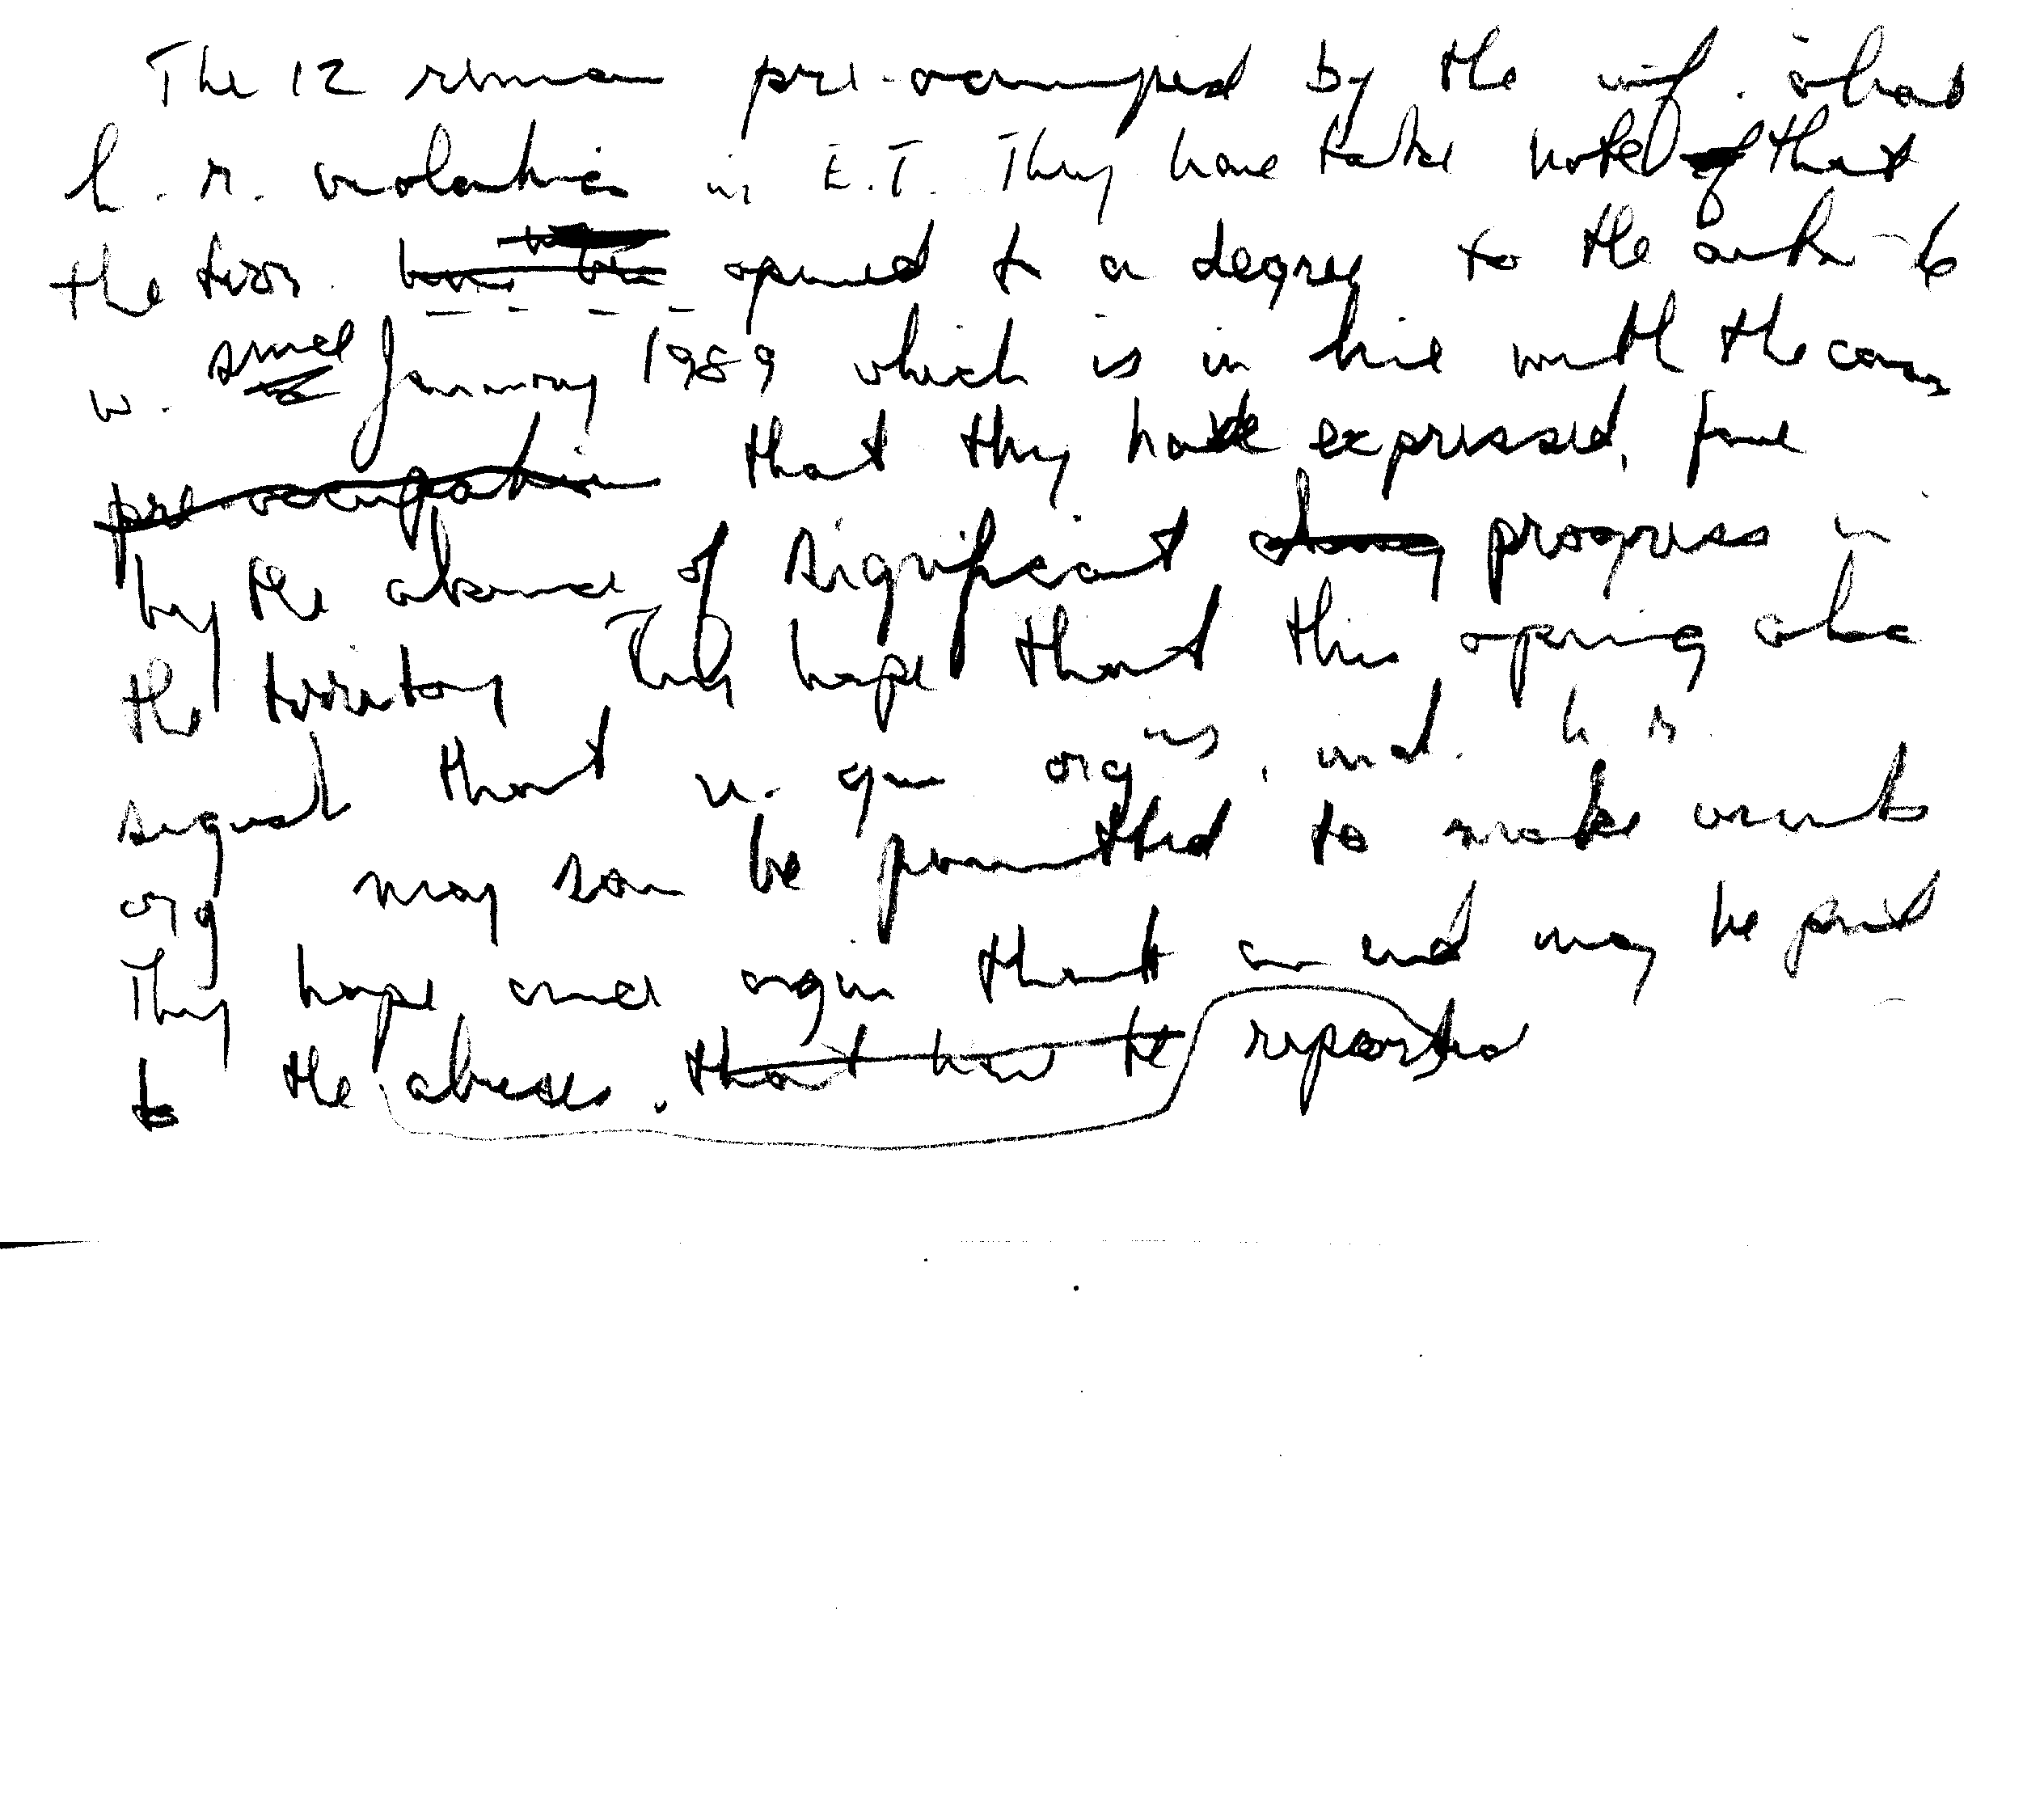 The 12 remain pre-occupied by the inf. about
h. r. violations in E.T. They have take note that
the terr. have been opened to a degree to the outside
w. since January 1989 which is in line with the concern
pre-occupation that they have expressed, find
by the absence of significant change progress in
the territory They hope that this opening also
suggest that n. gov orgns, incl. h. r.
org may soon be permitted to make visits
They hope once again that an end may be put
to the abuses. that have be reported